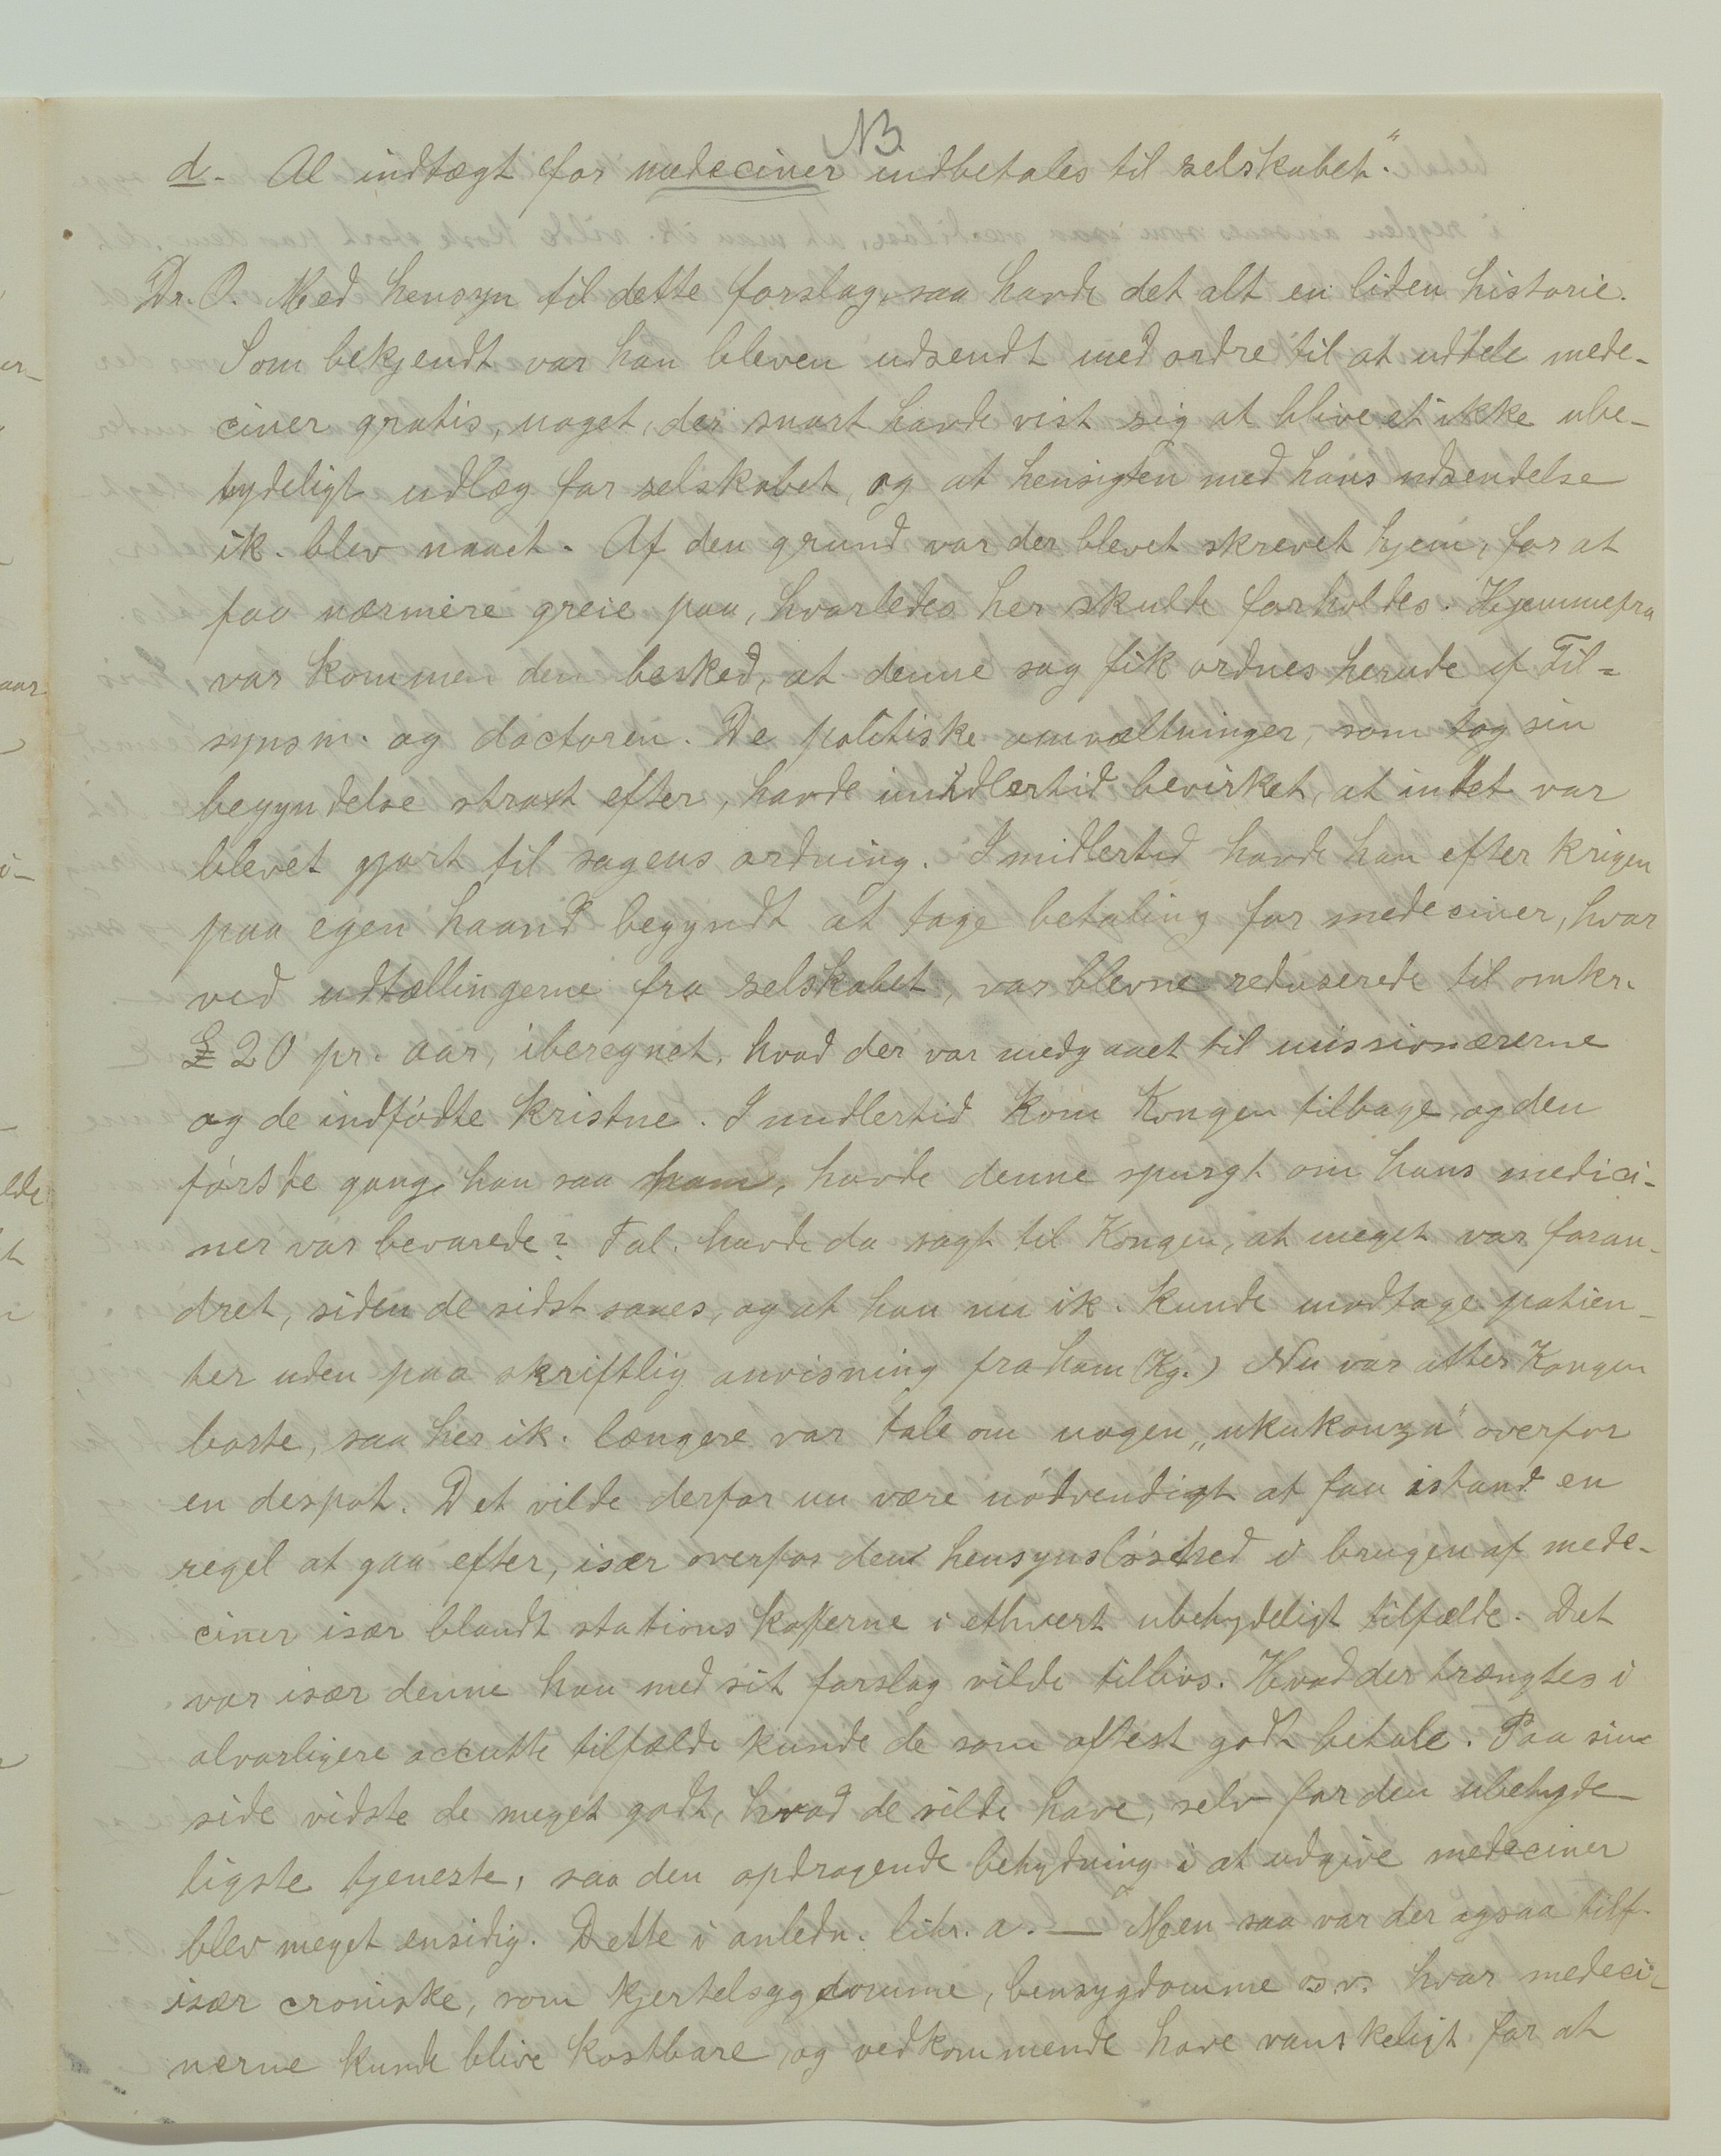 NB.
d. Al indtægt for medeciner indbetales til selskabet."
Dr. O. Med hensyn til dette forslag, saa havde det alt en liden historie.
Som bekjendt var han bleven udsendt med ordre til at uddele mede-
ciner gratis, noget, der snart havde vist sig at blive et ikke ube-
tydeligt udlæg for selskabet, og at hensigten med hans udsendelse
ik. blev naaet. Af den grund var der blevet skrevet hjem, for at
faa nærmere greie paa, hvorledes her skulde forholdes. Hjemmefra
var kommen den besked, at denne sag fik ordnes herude af Til-
synsm. og doctoren. De politiske omvæltninger, som tog sin
begyndelse strax efter, havde imidlertid bevirket, at intet var
blevet gjort til sagens ordning. Imidlertid havde han efter krigen
paa egen haand begyndt at tage betaling for medeciner, hvor
ved udtællingerne fra selskabet, var blevne reduserede til omkr.
£ 20 pr. aar, iberegnet, hvad der var medgaaet til missionærerne
og de indfødte kristne. Imidlertid kom Kongen tilbage, og den
første gang, han saa ham, havde denne spurgt om hans medici-
ner var bevarede? Tal. havde da sagt til Kongen, at meget var foran-
dret, siden de sidst saaes, og at han nu ik. kunde modtage patien-
ter uden paa skriftlig anvisning fra ham (Kg.) Nu var atter Kongen
borte, saa her ik. længere var tale om nogen „ukukonza" overfor
en despot. Det vilde derfor nu være nødvendigt at faa istand en
regel at gaa efter, især overfor den hensynsløshed i brugen af mede-
ciner især blandt stationskafferne i ethvert ubetydeligt tilfælde. Det
var især denne han med sit forslag vilde tillivs. Hvad der trængtes i
alvorligere accutte tilfælde kunde de som oftest godt betale. Paa sin
side vidste de meget godt, hvad de vilde have, selv for den ubetyde-
ligste tjeneste, saa den opdragende betydning i at udgive medeciner
blev meget ensidig. Dette i anledn. litr. a. — Men saa var der ogsaa tilf.
især croniske, som kjertelsygdomme, bensygdomme osv. hvor medeci-
nerne kunde blive kostbare, og vedkommende have vanskeligt for at